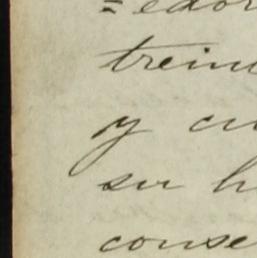 =edor
trein
y cu
su h
conse